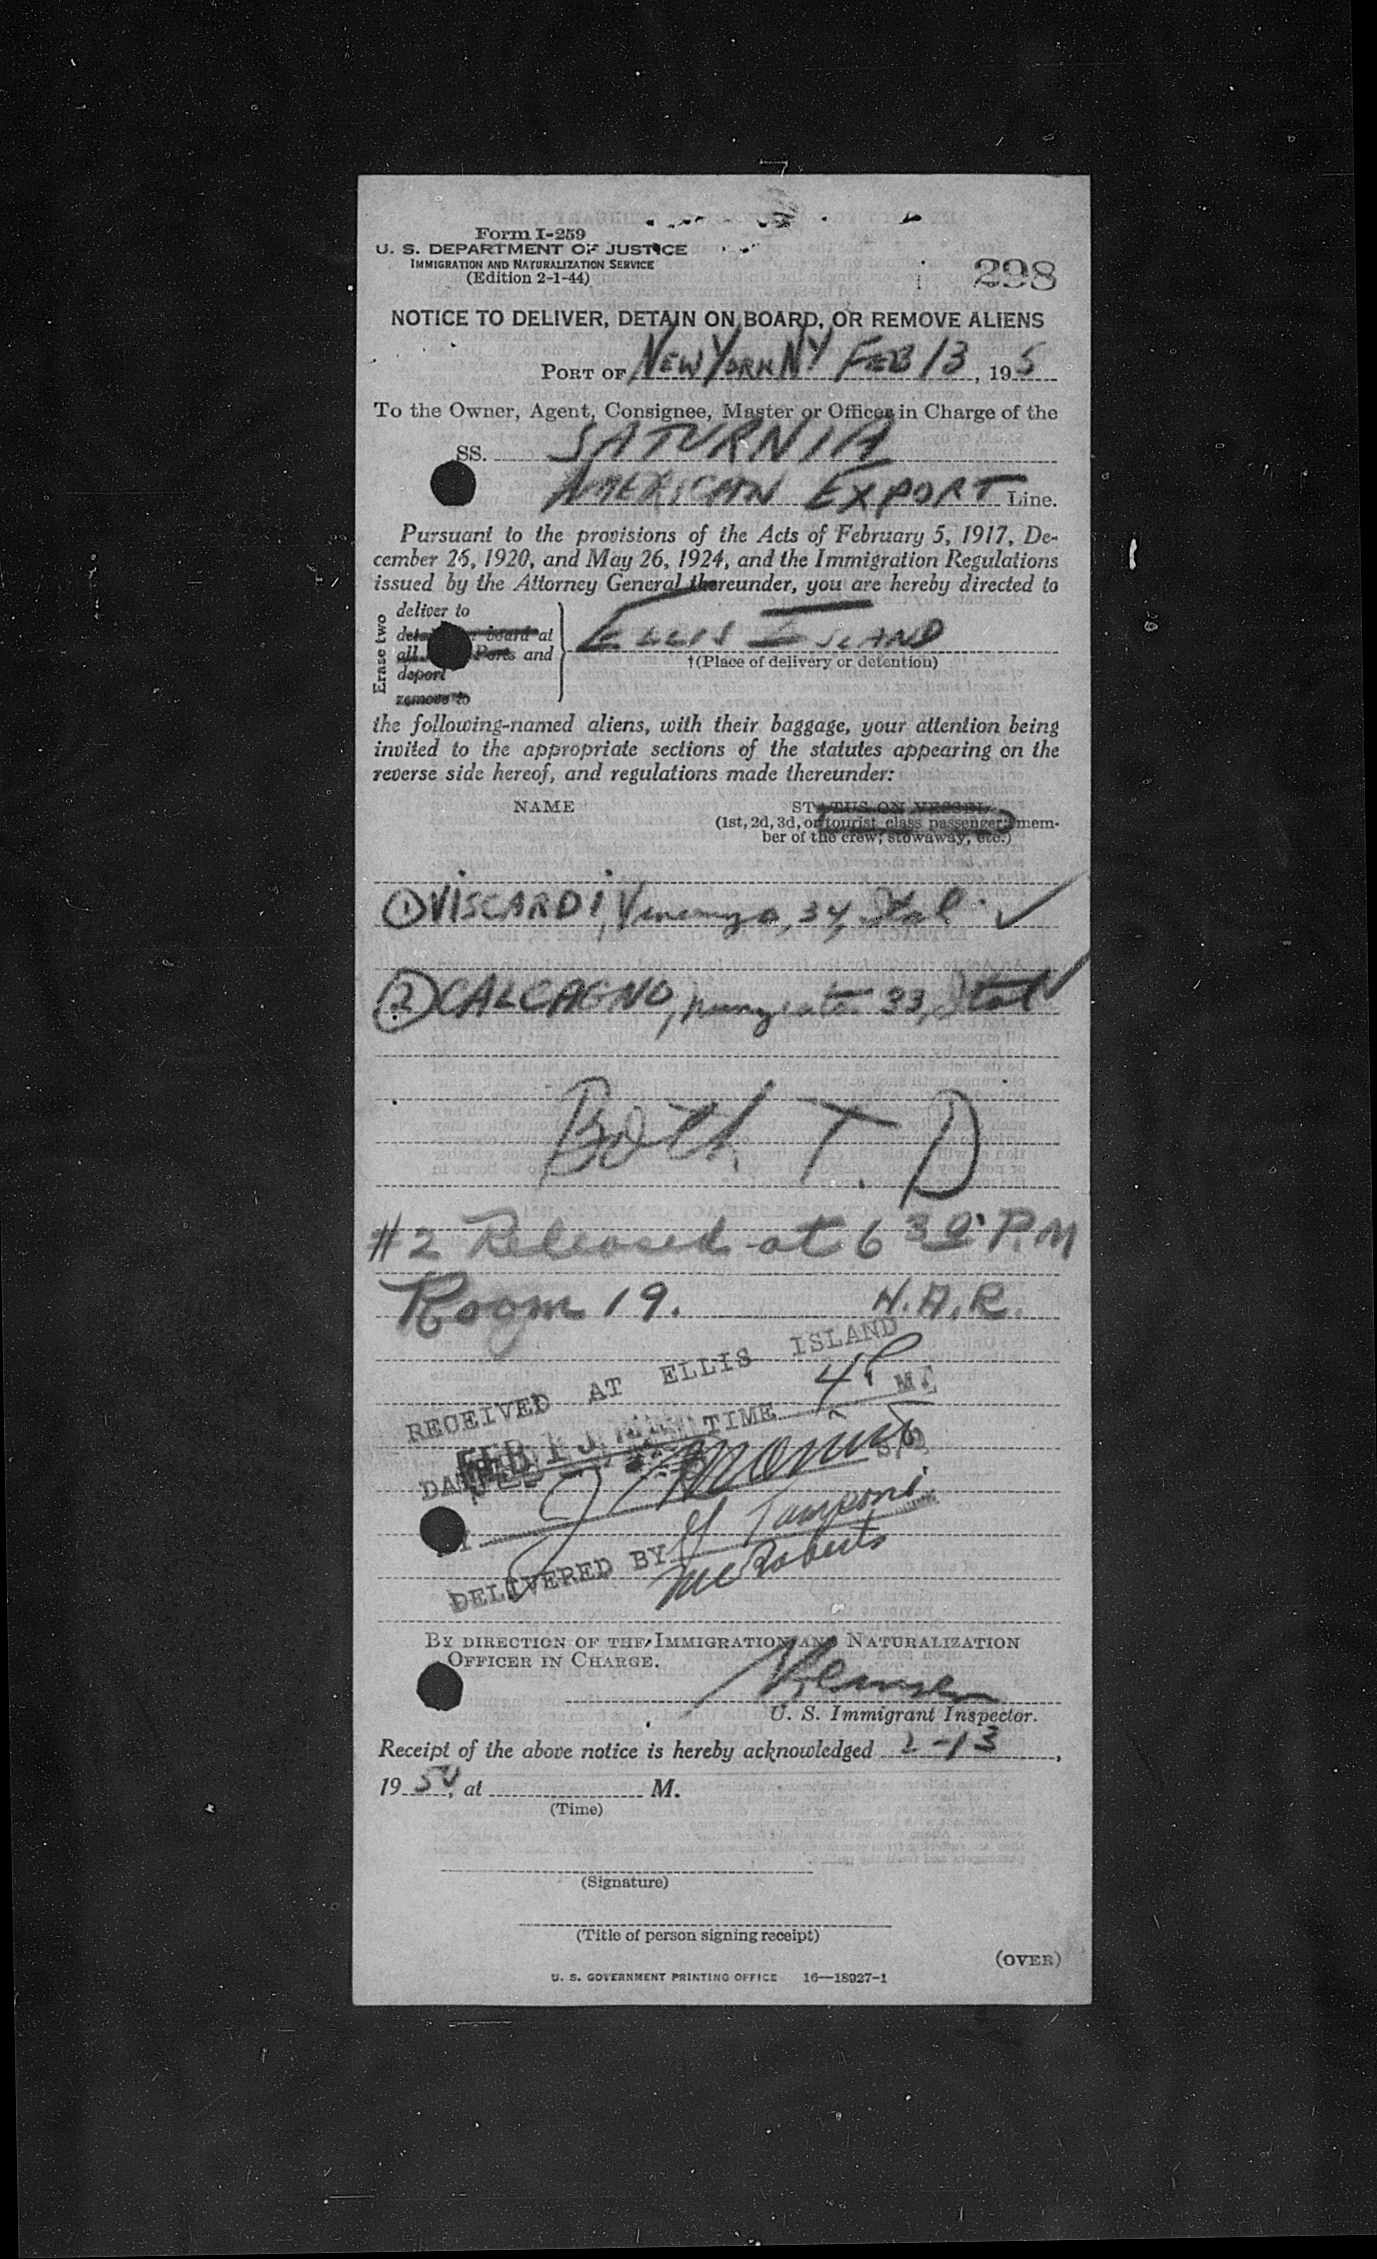 Form I-259
U. S. DEPARTMENT OF JUSTICE
IMMIGRATION AND NATURALIZATION SERVICE
(Edition 2-1-44)
298
NOTICE TO DELIVER, DETAIN ON BOARD, OR REMOVE ALIENS
PORT OF NEW YORK NY FEB 13, 195
To the Owner, Agent, Consignee, Master or Officer in Charge of the
SS. SATURNIA
AMERICAN EXPORT Line.
Pursuant to the provisions of the Acts of February 5, 1917, De-
cember 26, 1920, and May 26, 1924, and the Immigration Regulations
issued by the Attorney General thereunder, you are hereby directed to
Erase two
deliver to
board at
all Ports and
deport
remove to
ELLIS ISLAND
†(Place of delivery or detention)
the following-named aliens, with their baggage, your attention being
invited to the appropriate sections of the statutes appearing on the
reverse side hereof, and regulations made thereunder:
NAME STATUS ON VESSEL
(1st, 2d, 3d, or tourist class passenger; mem-
ber of the crew; stowaway, etc.)
① VISCARDI, 34, Ital ✓
② CALCAGNO, 33, Ital ✓
Both T. D
#2 Released at 6 30 P.M
Room 19. H.A.R.
RECEIVED AT ELLIS ISLAND
FEB TIME 4 P M
DELIVERED BY
McRoberts
BY DIRECTION OF THE IMMIGRATION AND NATURALIZATION
OFFICER IN CHARGE.
U. S. Immigrant Inspector.
Receipt of the above notice is hereby acknowledged 2-13,
1950, at M.
(Time)
(Signature)
(Title of person signing receipt)
(OVER)
U. S. GOVERNMENT PRINTING OFFICE 16—18927-1